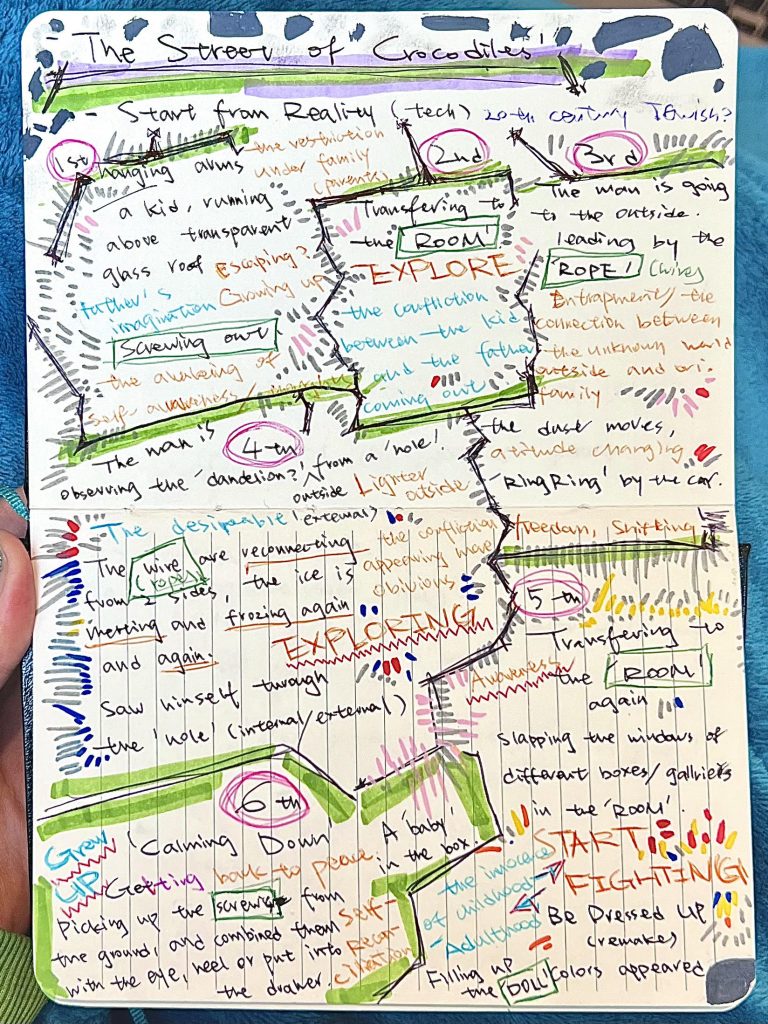 - "The Street of Crocodiles"
- Start from Reality (tech) 20-th century Jewish?
1st
hanging arms
the restriction
under family
(parents)
a kid, running
above transparent
glass roof Escaping?
Growing up
father's
imagination
Screwing out
the awaking of
self-awareness/
2nd
Transfering to
the 'ROOM'
EXPLORE
the confliction
between the kid
and the father
coming out
3rd
The man is going
to the outside.
leading by the
'ROPE' (wires)
Entrapment/the
connection between
the unknown world
outside and ori.
family
the dust moves,
attitude changing
'RingRing' by the car.
freedom, Shifting
4-th
The man is
observing the 'dandelion?' from a 'hole'.
outside Lighter
outside
The despicable (external)
The wire are reconnecting
(ropes)
from 2 sides, the ice is
merting and frozing again
and again.
the confliction
appearing more
obivious
EXPLORING
Saw himself through
the 'hole' (internal/external)
5-th
Awareness
Transfering to
the 'ROOM'
again
Slapping the windows of
different boxes/galleries
in the 'ROOM'.
START
FIGHTING!
Be Dressed Up
(remakes)
the innocence
of childhood
- Adulthood
Filling up
the 'DOLL' Colors appeared
6-th
Grew
UP
'Calming Down'
Getting back to peace.
Picking up the screws from
the ground, and combined them
with the eye, heel or put into
the drawer.
Self-
Recon-
ciliation
A 'baby'
in the box.